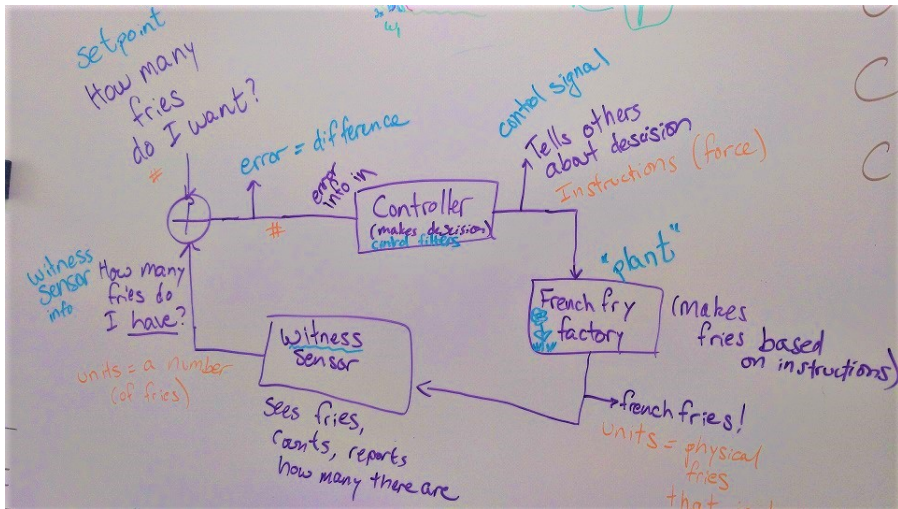 setpoint
How many
fries
do I want?
#
error = difference
error
info in
#
Controller
(makes descision)
control filters
control signal
Tells others
about descision
Instructions (force)
"plant"
French fry
factory
(makes
fries based
on instructions)
french fries!
units = physical
fries
Witness
Sensor
Sees fries,
counts, reports
how many there are
witness
sensor
info
How many
fries do
I have?
units = a number
(of fries)
C
C
C